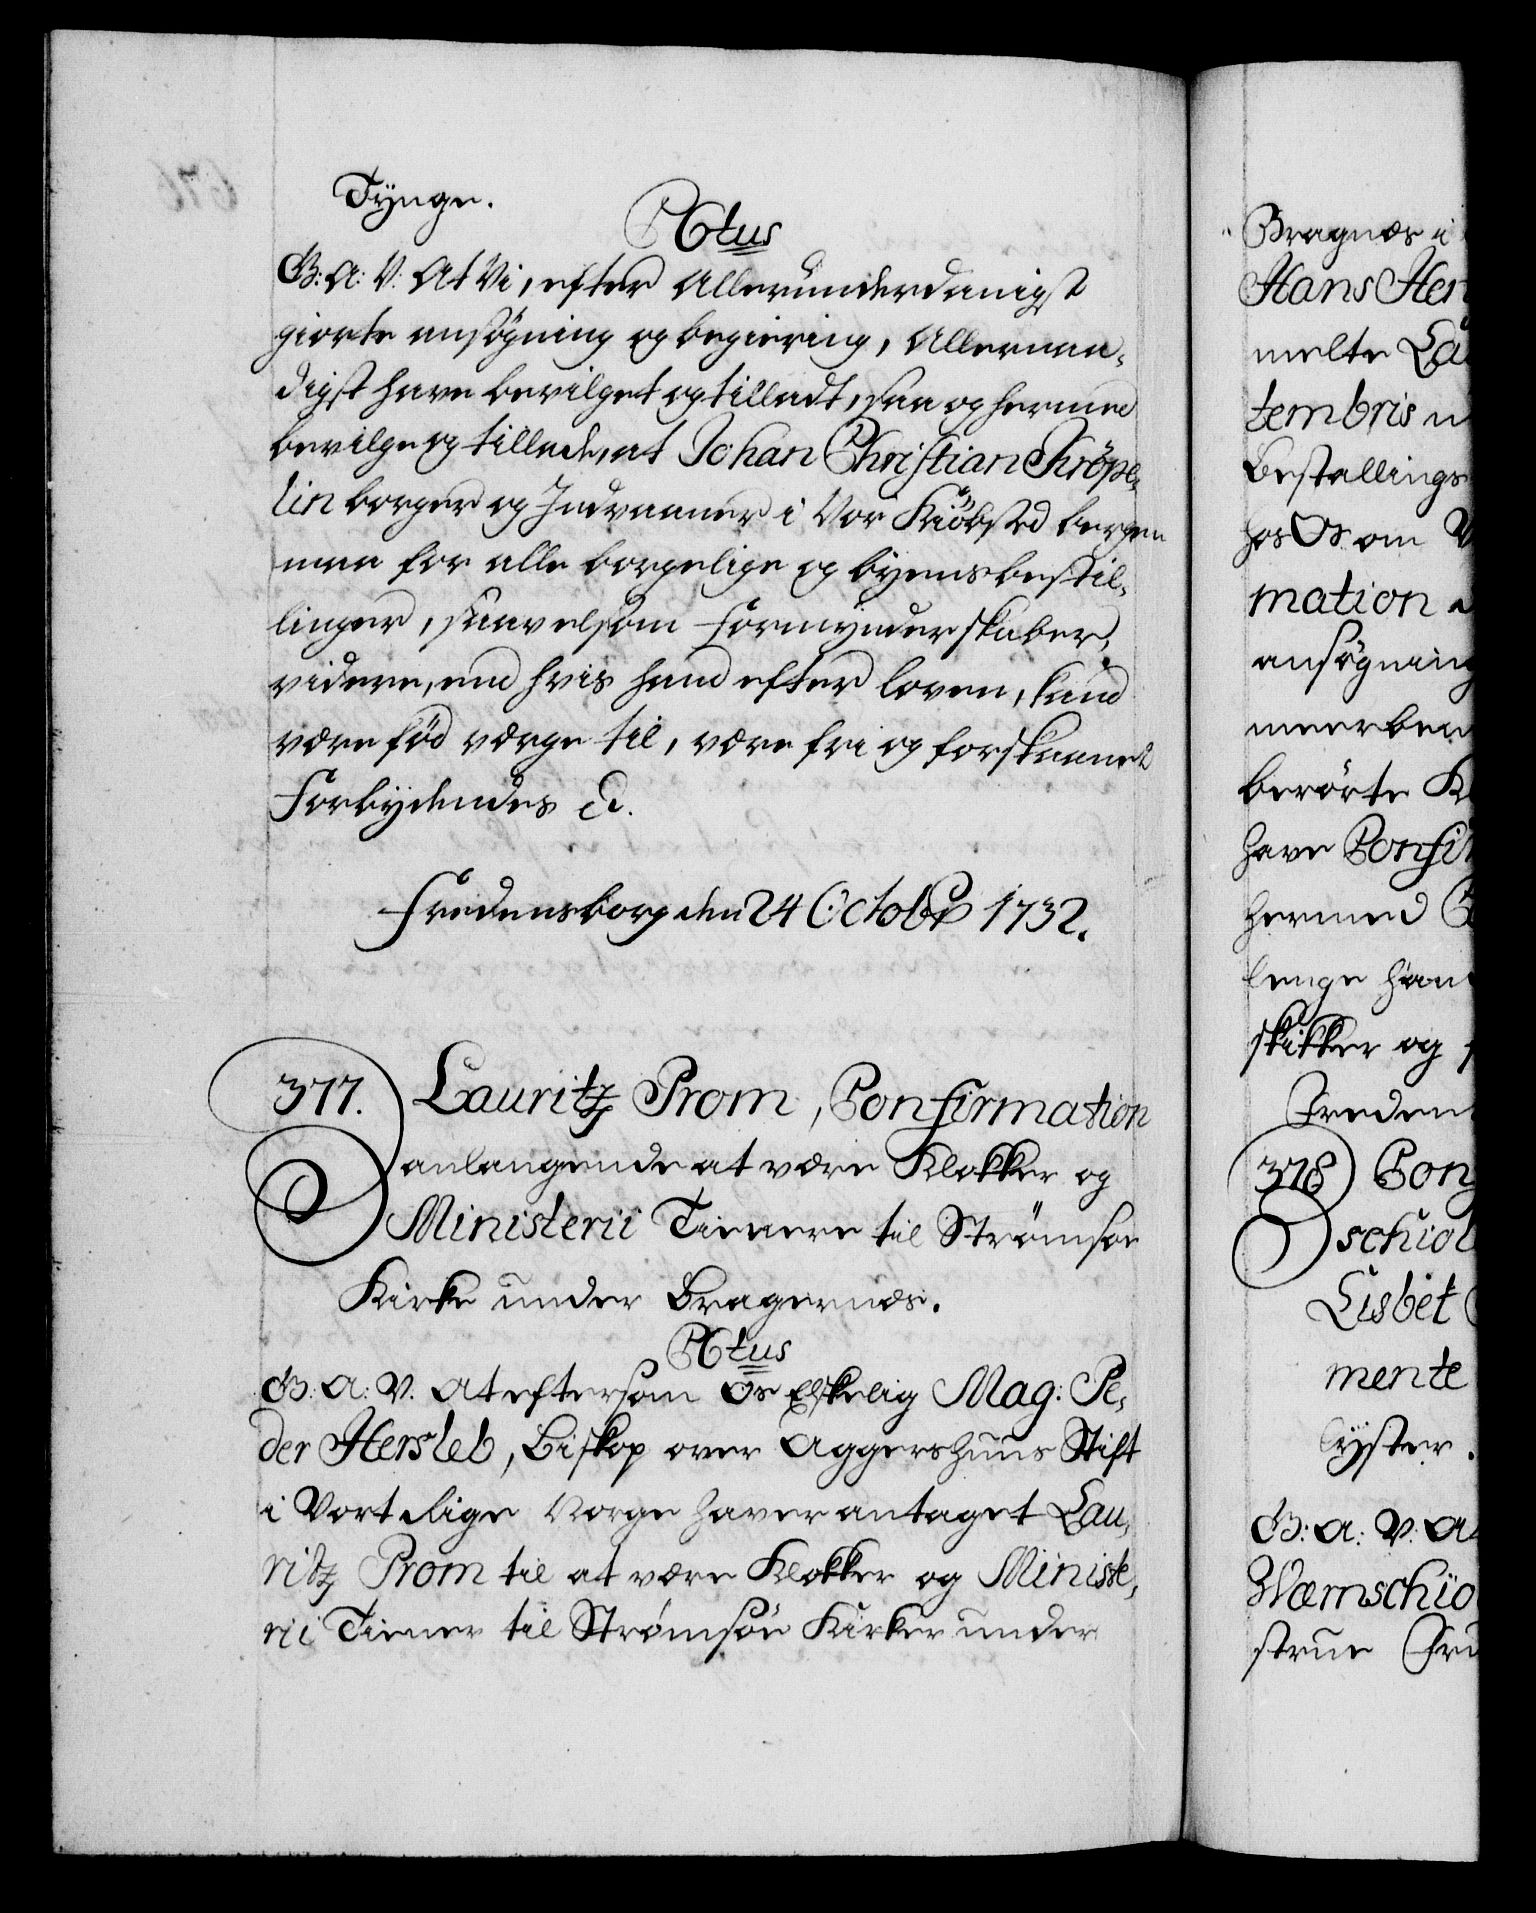 Tynge.
Ctus
G: A: V: At Vi, efter Allerunderdanigst
giorte ansøgning og begiering, Allernaa-
digst have bevilget og tilladt, saa og hermed
bevilge og tillade, at Johan Christian Kröpe-
lin borger og Indvaaner i Vor Kiöbsted bergen
maa for alle borgelige og byens bestil-
linger, saavelsom Formynderskaber,
videre, end hvis hand efter loven, kand
være fød værge til, være fri og forskaanet
Forbydendes &.
Fredensborg den 24 Octobr 1732.
377. Lauritz Prom, Confirmation
anlangende at være Klokker og
Ministerii Tienere til Strømsøe
Kirke under Bragernæs.
Ctus
G: A: V. At eftersom Os Elskelig Mag: Pe-
der Hersleb, Biskop over Aggershuus Stift
i Vort Rige Norge haver antaget Lau-
ritz Prom til at være Klokker og Ministe-
rii Tiener til Strømsøe Kirke under
Bragnæs i
Hans Hen
melte Lau
tembris
Bestallings
hos Os om
mation
ansøgning
meerbem
berørte Kl
have Confir
hermed
lenge hand
skikker og
Freden
378 Con
schiol
Lisbet
mente
Lyster.
G: A: V. At
Wærnschio
strue Fru